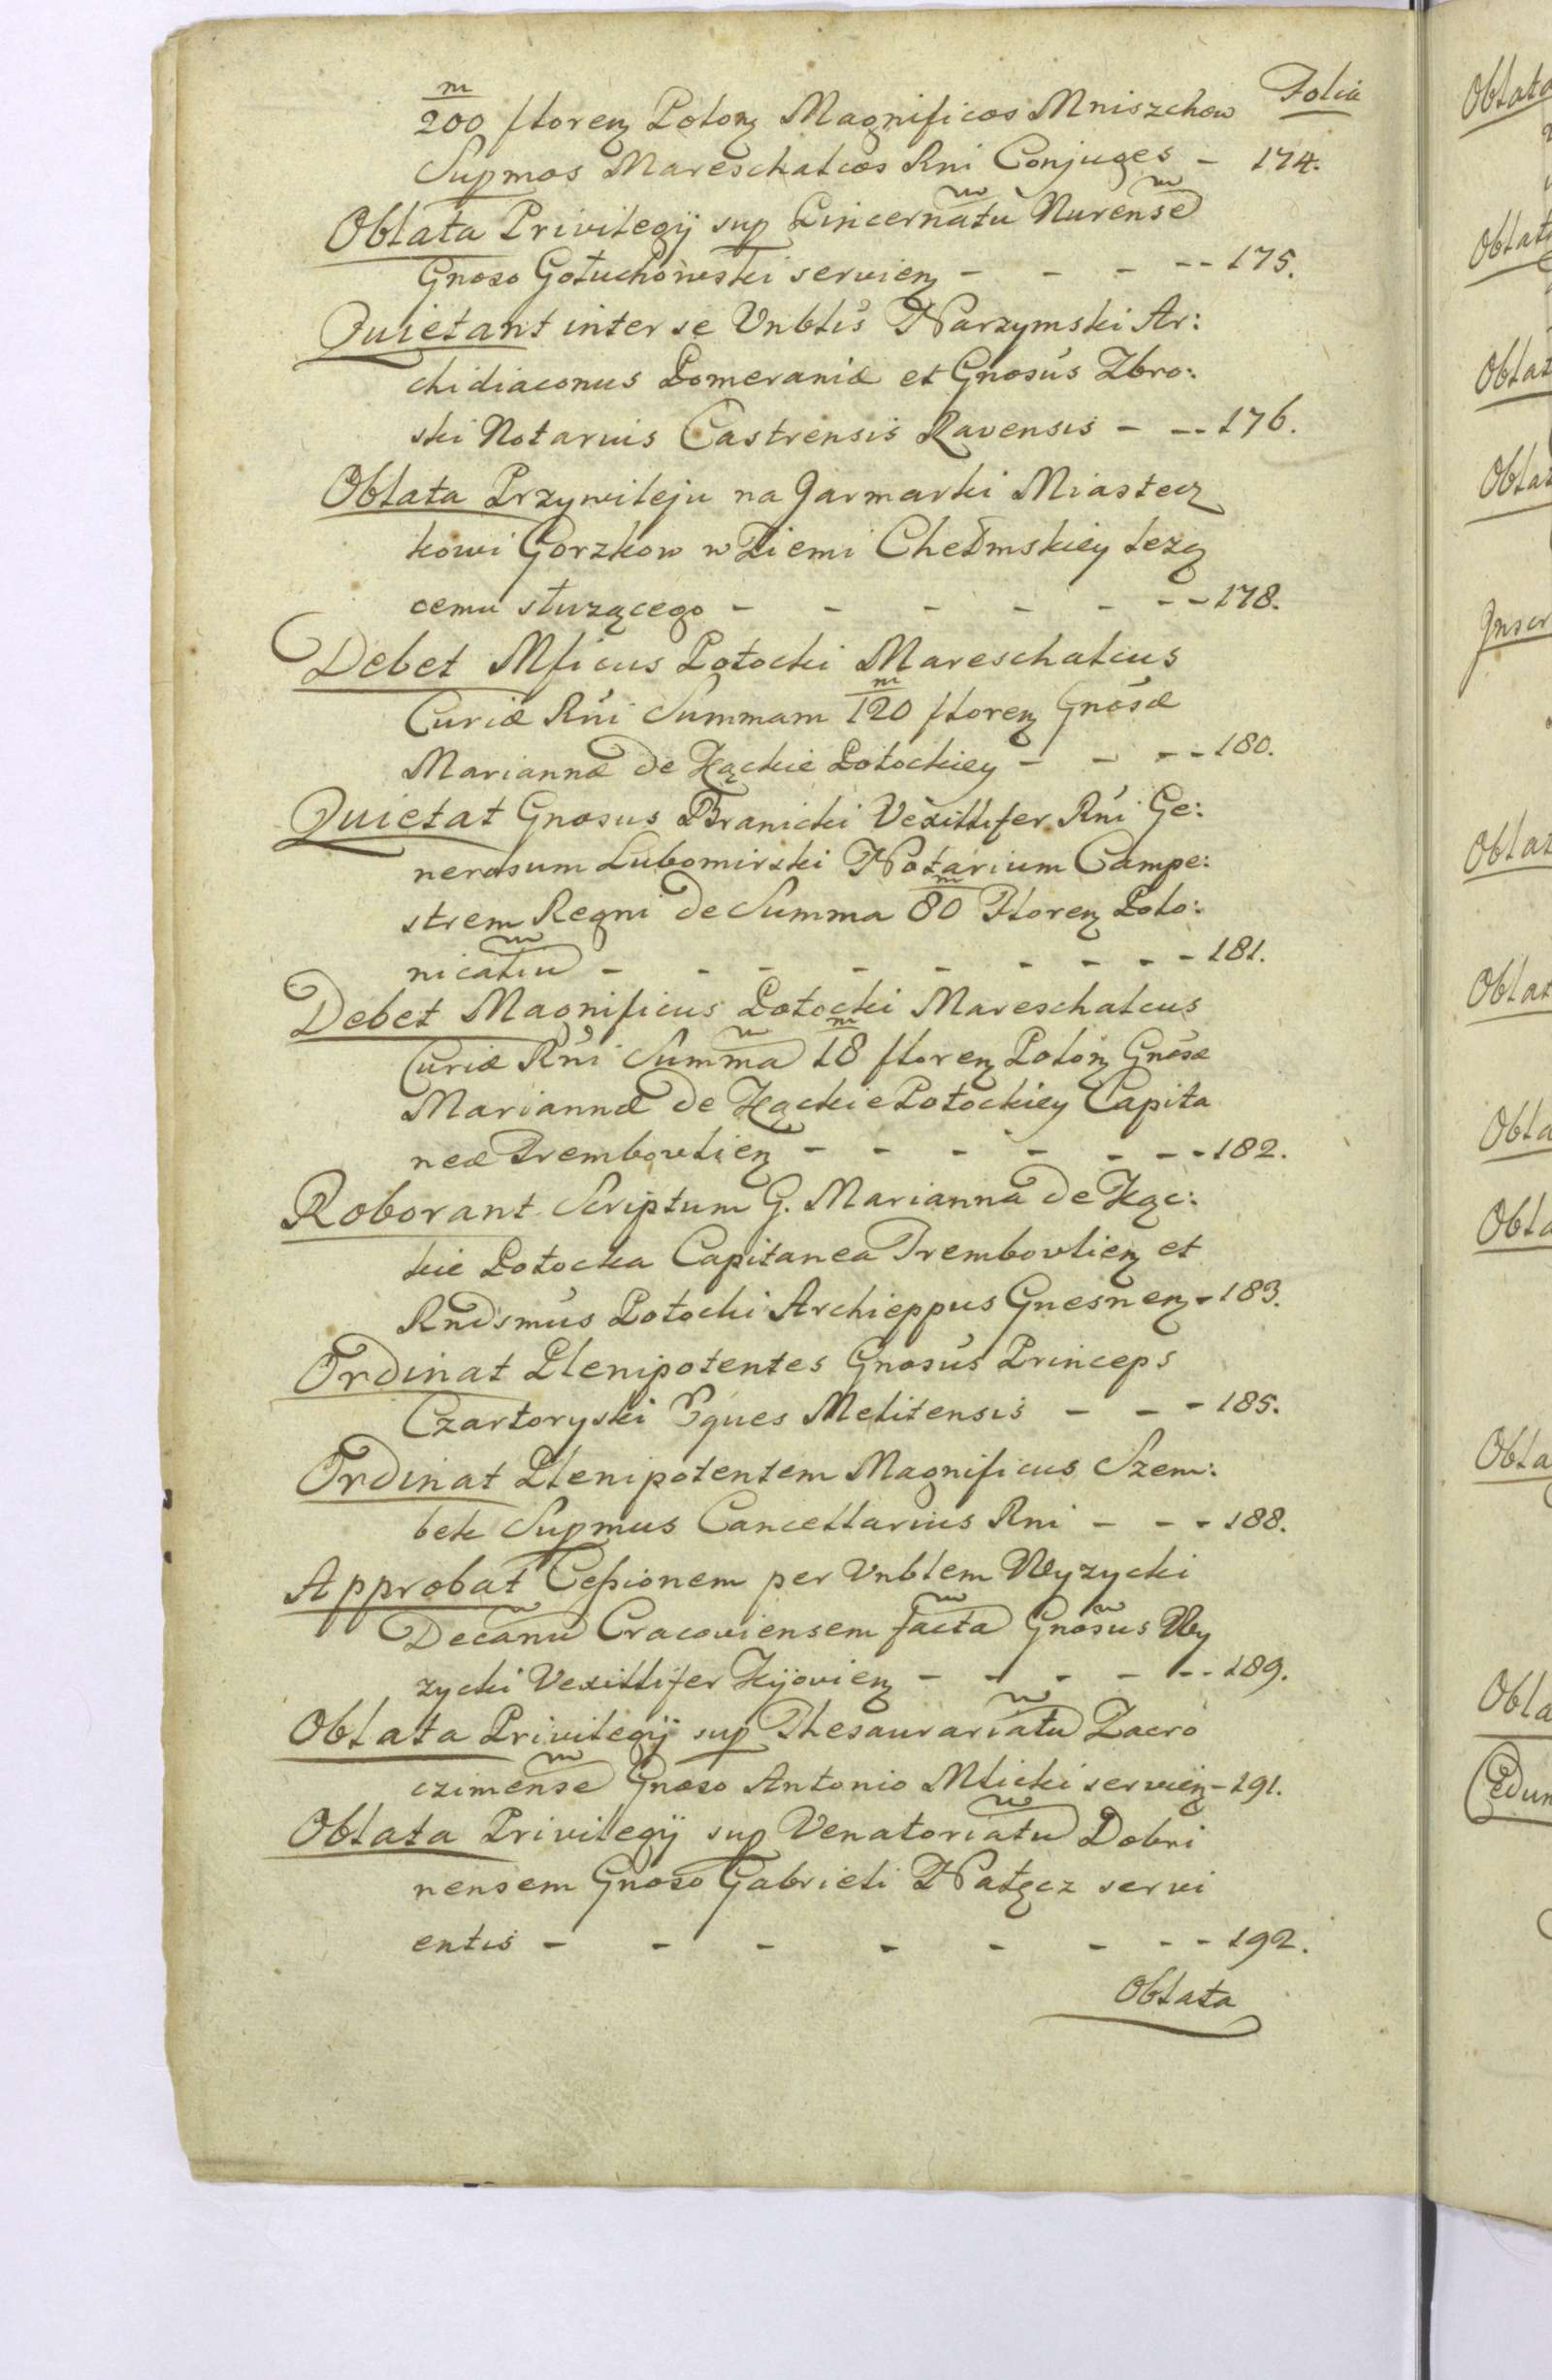 Folia
m
200 floren Polon Magnificos Mniszchow
Supmos Mareschalcos Rni Conjuges - 174.
Oblata Privilegij sup Pincernatu Nurense
Gnoso Gołuchowski servien - - - -- 175.
Quietant inter se Vnblis Narzymski Ar:
chidiaconus Pomeraniæ et Gnosus Zbro:
ski Notarius Castrensis Ravensis - -- 176.
Oblata Przywileju na Jarmarki Miastecz
kowi Gorzkow w Ziemi Chełmskiey leżą
cemu służącego - - - - - - - 178.
Debet Mficus Potocki Mareschalcus
m
Curiæ Rni Summam 120 floren Gnosæ
Mariannæ de Kąckie Potockiey - - - - 180.
Quietat Gnosus Branicki Vexillifer Rni Ge:
nerosum Lubomirski Notarium Campe:
m
strem Regni de Summa 80 Floren Polo:
nicaliu - - - - - - - - - 181.
Debet Magnificus Potocki Mareschalcus
m
Curiæ Rni Summa 18 floren Polon Gnosæ
Mariannæ de Kąckie Potockiey Capita
neæ Trembovlien - - - - - - - 182.
Roborant Scriptum G. Marianna de Kąc:
kie Potocka Capitanea Trembovlien et
Rndsmus Potocki Archieppus Gnesnen - 183.
Ordinat Plenipotentes Gnosus Princeps
Czartoryski Eques Melitensis - - - 185.
Ordinat Plenipotentem Magnificus Szem:
bek Supmus Cancellarius Rni - - - 188.
Approbat Cessionem per Vnblem Wyzycki
Decanu Cracoviensem facta Gnosus Wy
zycki Vexillifer Kijovien - - - - - - 189.
Oblata Privilegij sup Thesaurariatu Zacro
czimense Gnoso Antonio Mlicki servien - 191.
Oblata Privilegij sup Venatoriatu Dobri
nensem Gnoso Gabrieli Nałęcz servi
entis - - - - - - - - 192.
Oblata
Oblata